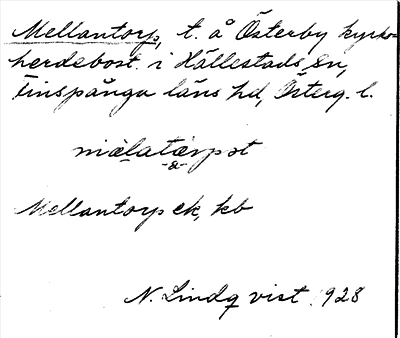 Mellantorp, t. å Österby kyrko-
herdebost. i Hällestads sn,
Finspånga läns hd, Österg. l.
mälatærp st
-a-
Mellantorp ek, kb
N. Lindqvist 1928